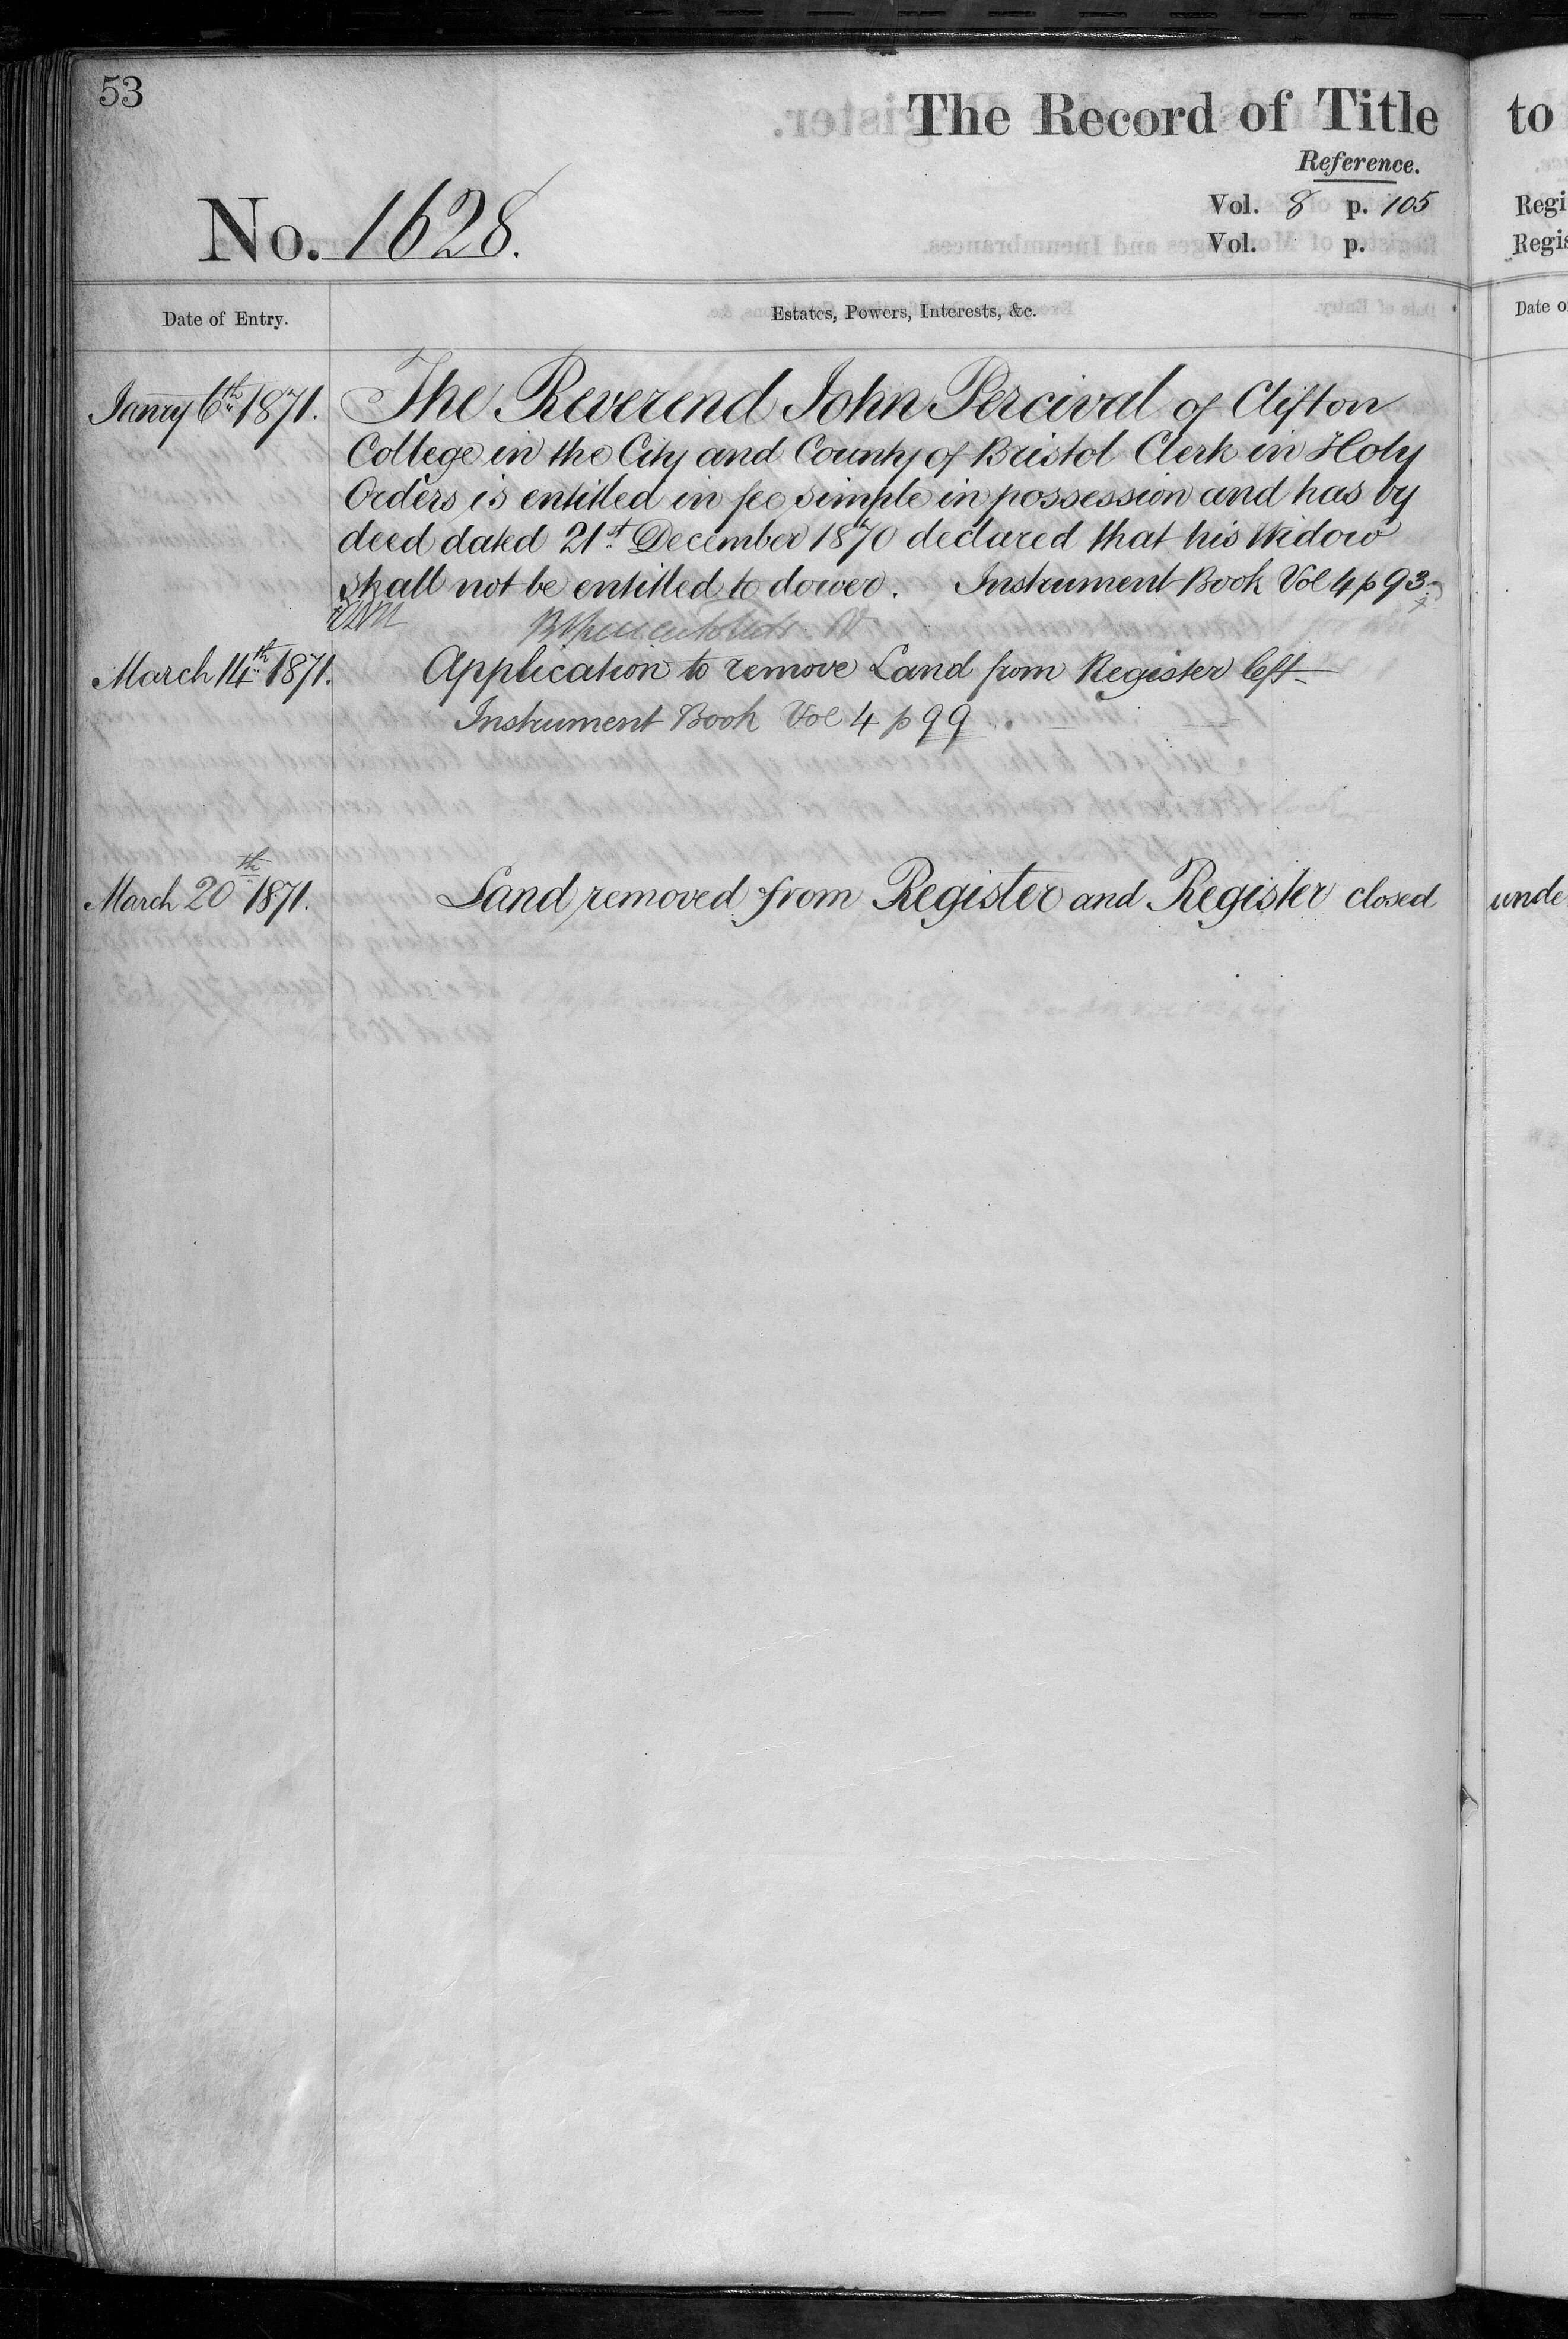 53
The Record of Title to
Reference.
Vol. 8 p. 105
Vol. p.
No. 1628.
Regi
Regis
Date of Entry.
Estates, Powers, Interests, &c.
Date o
Janry 6th 1871. The Reverend John Percival of Clifton
College in the City and County of Bristol Clerk in Holy
Orders is entitled in fee simple in possession and has by
deed dated 21st December 1870 declared that his Widow
shall not be entitled to dower. Instrument Book Vol 4 p 93
March 14th 1871. Application to remove Land from Register left
Instrument Book Vol 4 p 99
March 20th 1871. Land removed from Register and Register closed unde